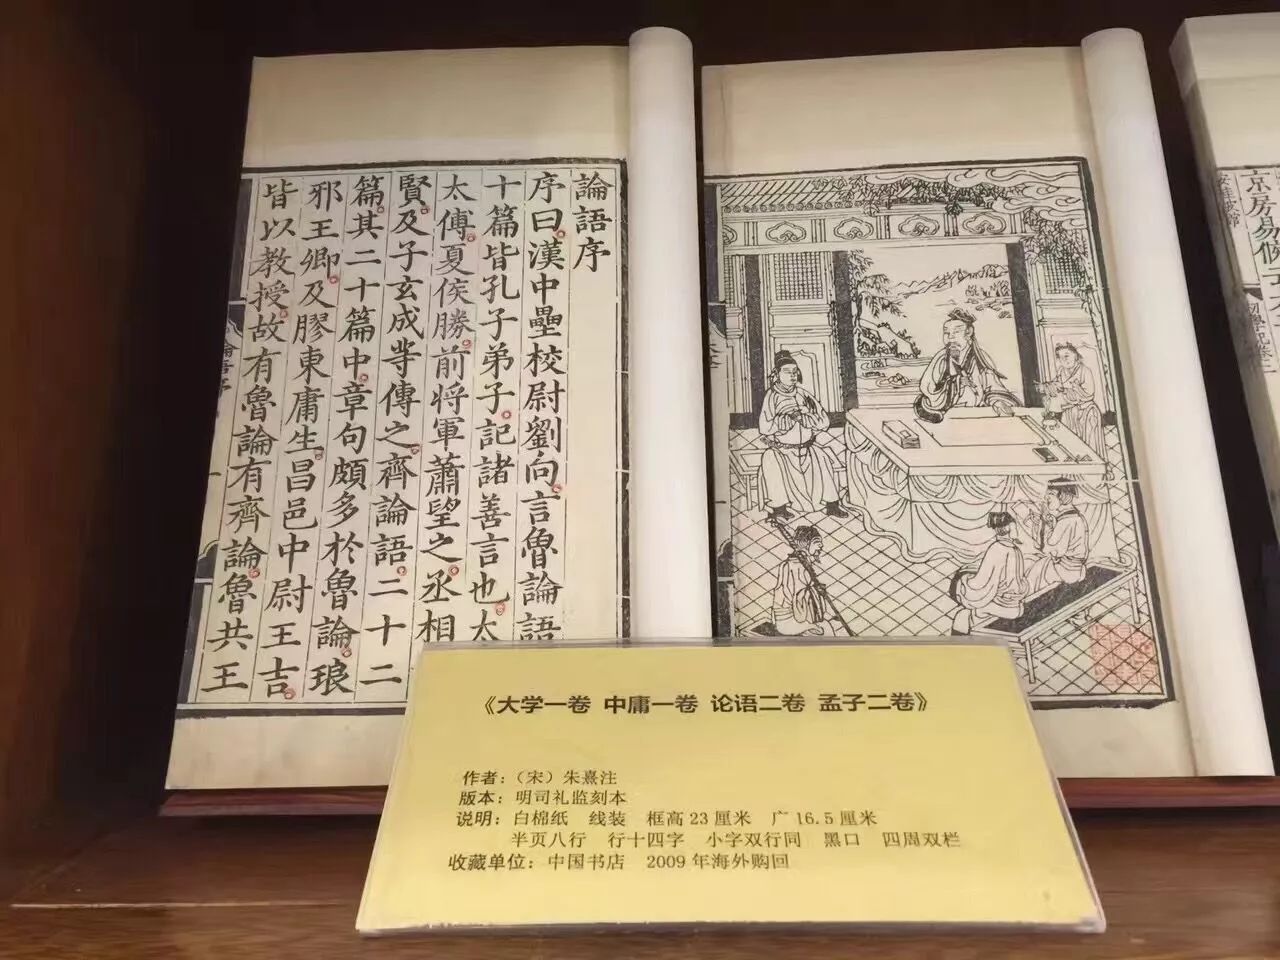 論語序
序曰漢中壘校尉劉向言魯論語
十篇皆孔子弟子記諸善言也太
太傅夏侯勝前將軍蕭望之丞相
賢及子玄成等傳之齊論語二十二
篇其二十篇中章句頗多於魯論琅
邪王卿及膠東庸生昌邑中尉王吉
皆以教授故有魯論有齊論魯共王
京房易候
《大学一卷 中庸一卷 论语二卷 孟子二卷》
作者：（宋）朱熹注
版本：明司礼监刻本
说明：白棉纸 线装 框高23厘米 广16.5厘米
半页八行 行十四字 小字双行同 黑口 四周双栏
收藏单位：中国书店 2009年海外购回